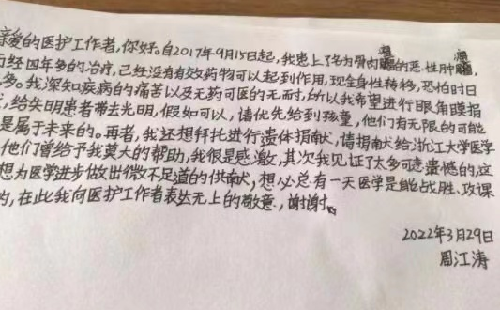 亲爱的医护工作者,你好。自2017年9月15日起,我患上了名为骨肉瘤的恶性肿瘤,
历经四年多的治疗,已经没有有效药物可以起到作用,现全身性转移,恐怕时日
多。我深知疾病的痛苦以及无药可医的无耐,所以我希望进行眼角膜捐
,给失明患者带去光明,假如可以,请优先给到孩童,他们有无限的可能
是属于未来的。再者,我还想拜托进行遗体捐献,请捐献给浙江大学医学
他们曾给予我莫大的帮助,我很是感激,其次我见证了太多可悲遗憾的,这
想为医学进步做出微不足道的供献,想必总有一天医学是能战胜、攻课
的,在此我向医护工作者表达无上的敬意,谢谢。
2022年3月29日
周江涛